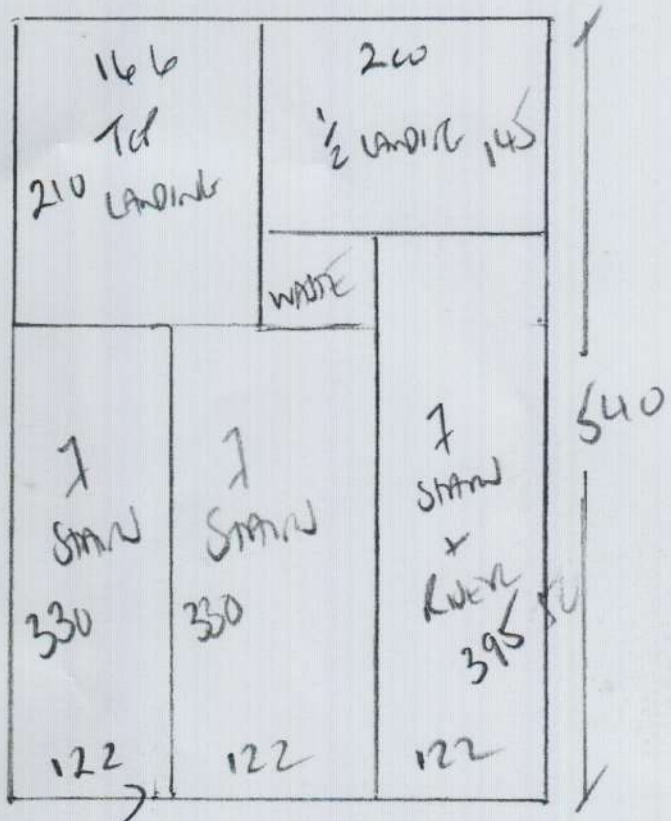 166
TOP
210 LANDING
200
1/2 LANDING 145
WASTE
540
7
STAIRS
330
122
7
STAIRS
330
122
7
STAIRS
+
RISER
395
122